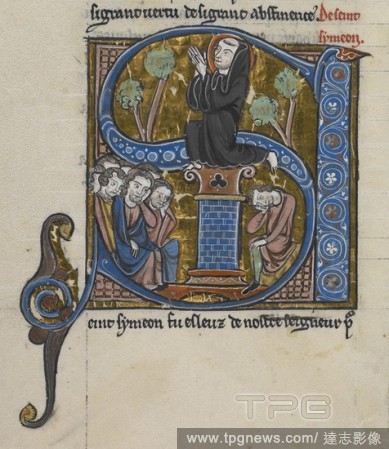 si grant vertu de si grant abstinence De seint
symeon.
eint symeon fu esleuz de nostre seigneur
TPG
www.tpgnews.com/ 達志影像